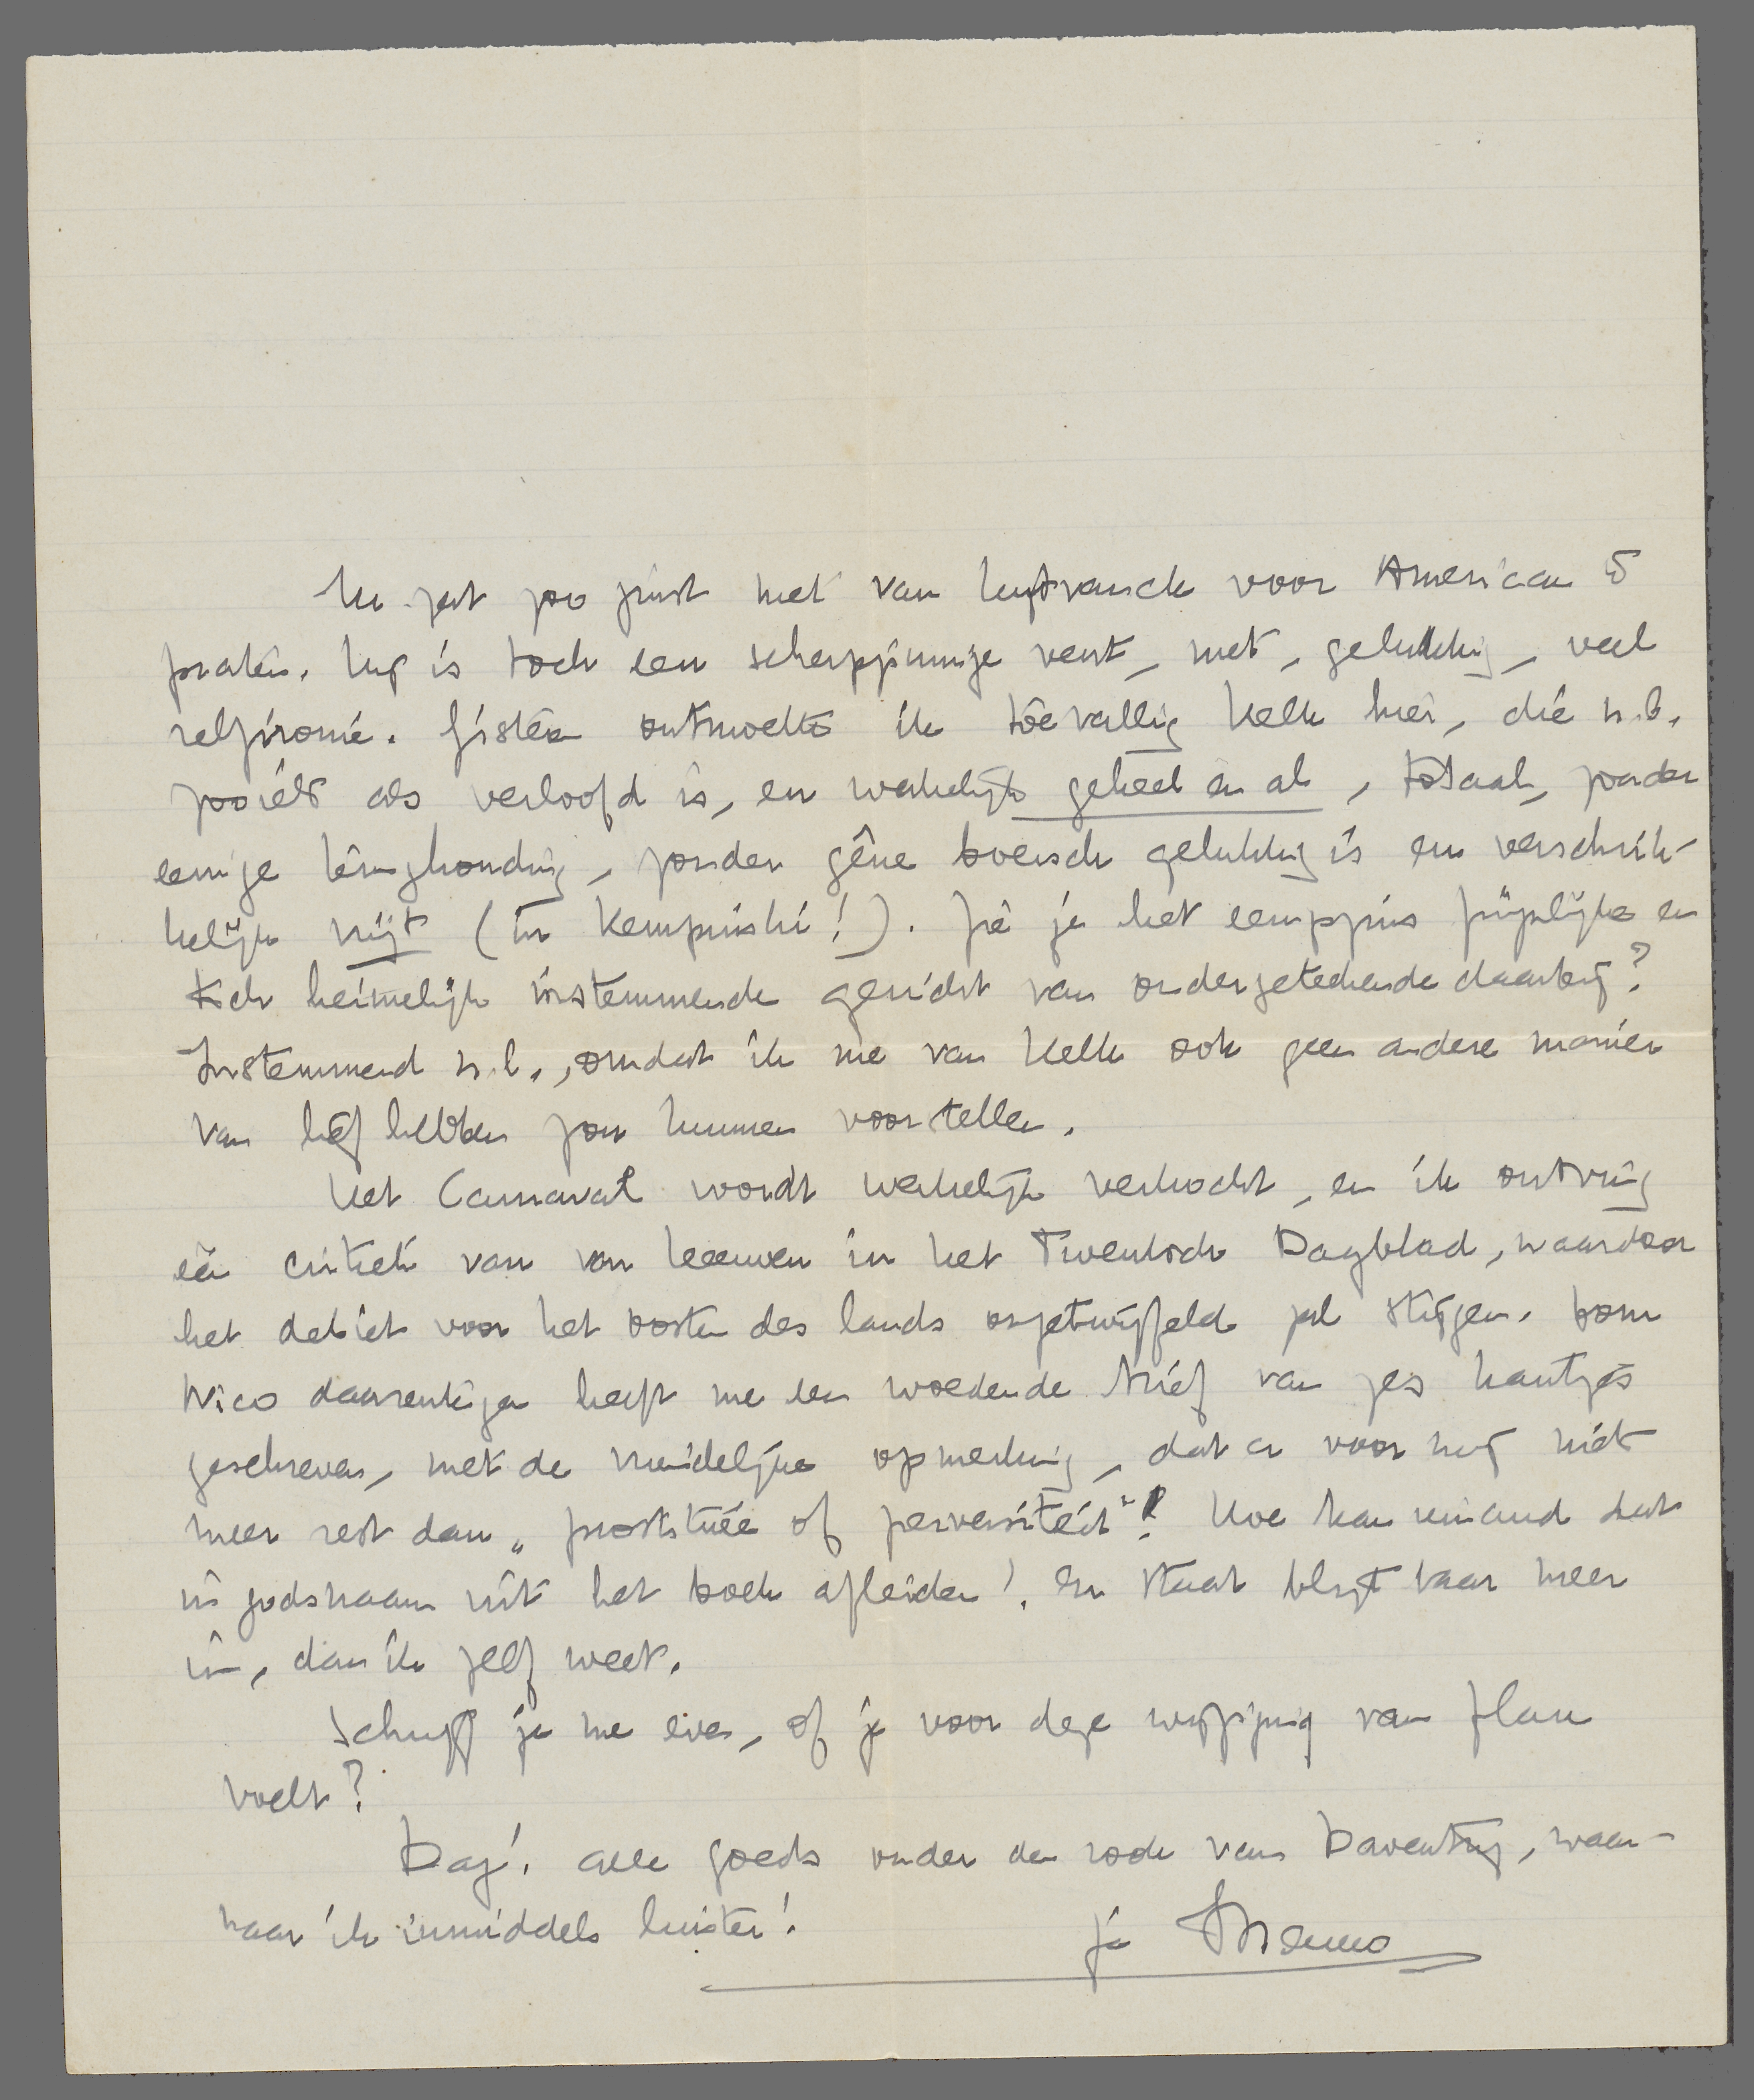 Ik zat zoo juist met van Lugtvanck voor American te
praten. Lug is toch een scherpzinnige vent, met, gelukkig, veel
zelfironie. Gisteren ontmoette ik toevallig Kelk hier, die n.b.
zooiets als verloofd is, en werkelijk geheel en al, totaal, zonder
eenige terughouding, zonder gêne boersch gelukkig is en verschrik-
kelijk vrijt (in Kempinski!). Zie je het eenigszins pijnlijke en
toch heimelijk instemmende gezicht van ondergeteekende daarbij?
Instemmend n.l., omdat ik me van Kelk ook geen andere manier
van liefhebben zou kunnen voorstellen.
Het Carnaval wordt werkelijk verkocht, en ik ontving
één critiek van van Leeuwen in het Twentsch Dagblad, waardoor
het debiet voor het oosten des lands ongetwijfeld zal stijgen. Oom
Nico daarentegen heeft me een woedende brief van zes kantjes
geschreven, met de vriendelijke opmerking, dat er voor mij niets
meer rest dan „prostituée of perversiteit"! Hoe kan iemand dat
in godsnaam uit het boek afleiden! Er staat blijkbaar meer
in, dan ik zelf weet.
Schrijf je me even, of je voor deze wijziging van plan
voelt?
Dag! Alle goeds onder de rook van Daventry, waar-
naar ik inmiddels luister!
je Menno